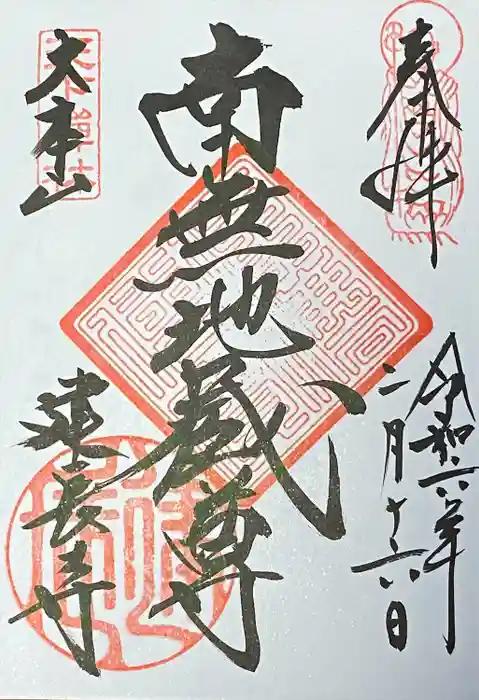 奉拝
令和六年
二月十六日
南無地蔵尊
大本山
建長寺